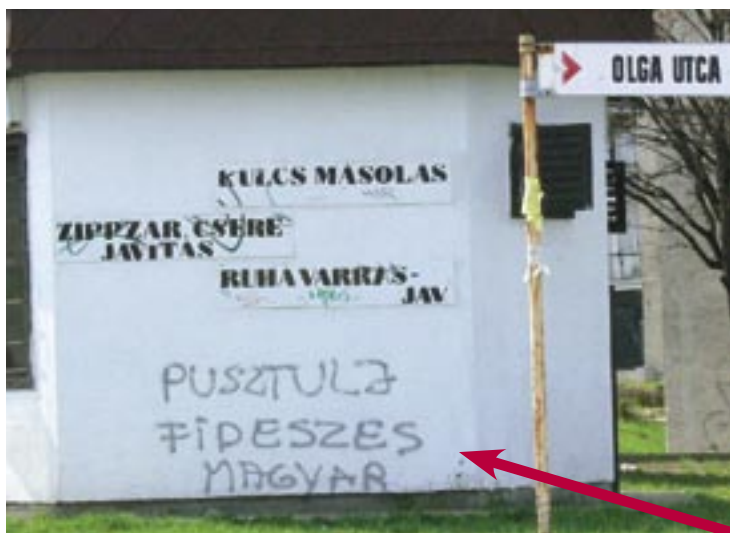 OLGA UTCA
KULCS MÁSOLAS
ZIPPZAR CSERE
JAVITAS
RUHA VARRÁS-
JAV
PUSZTULJ
FIDESZES
MAGYAR